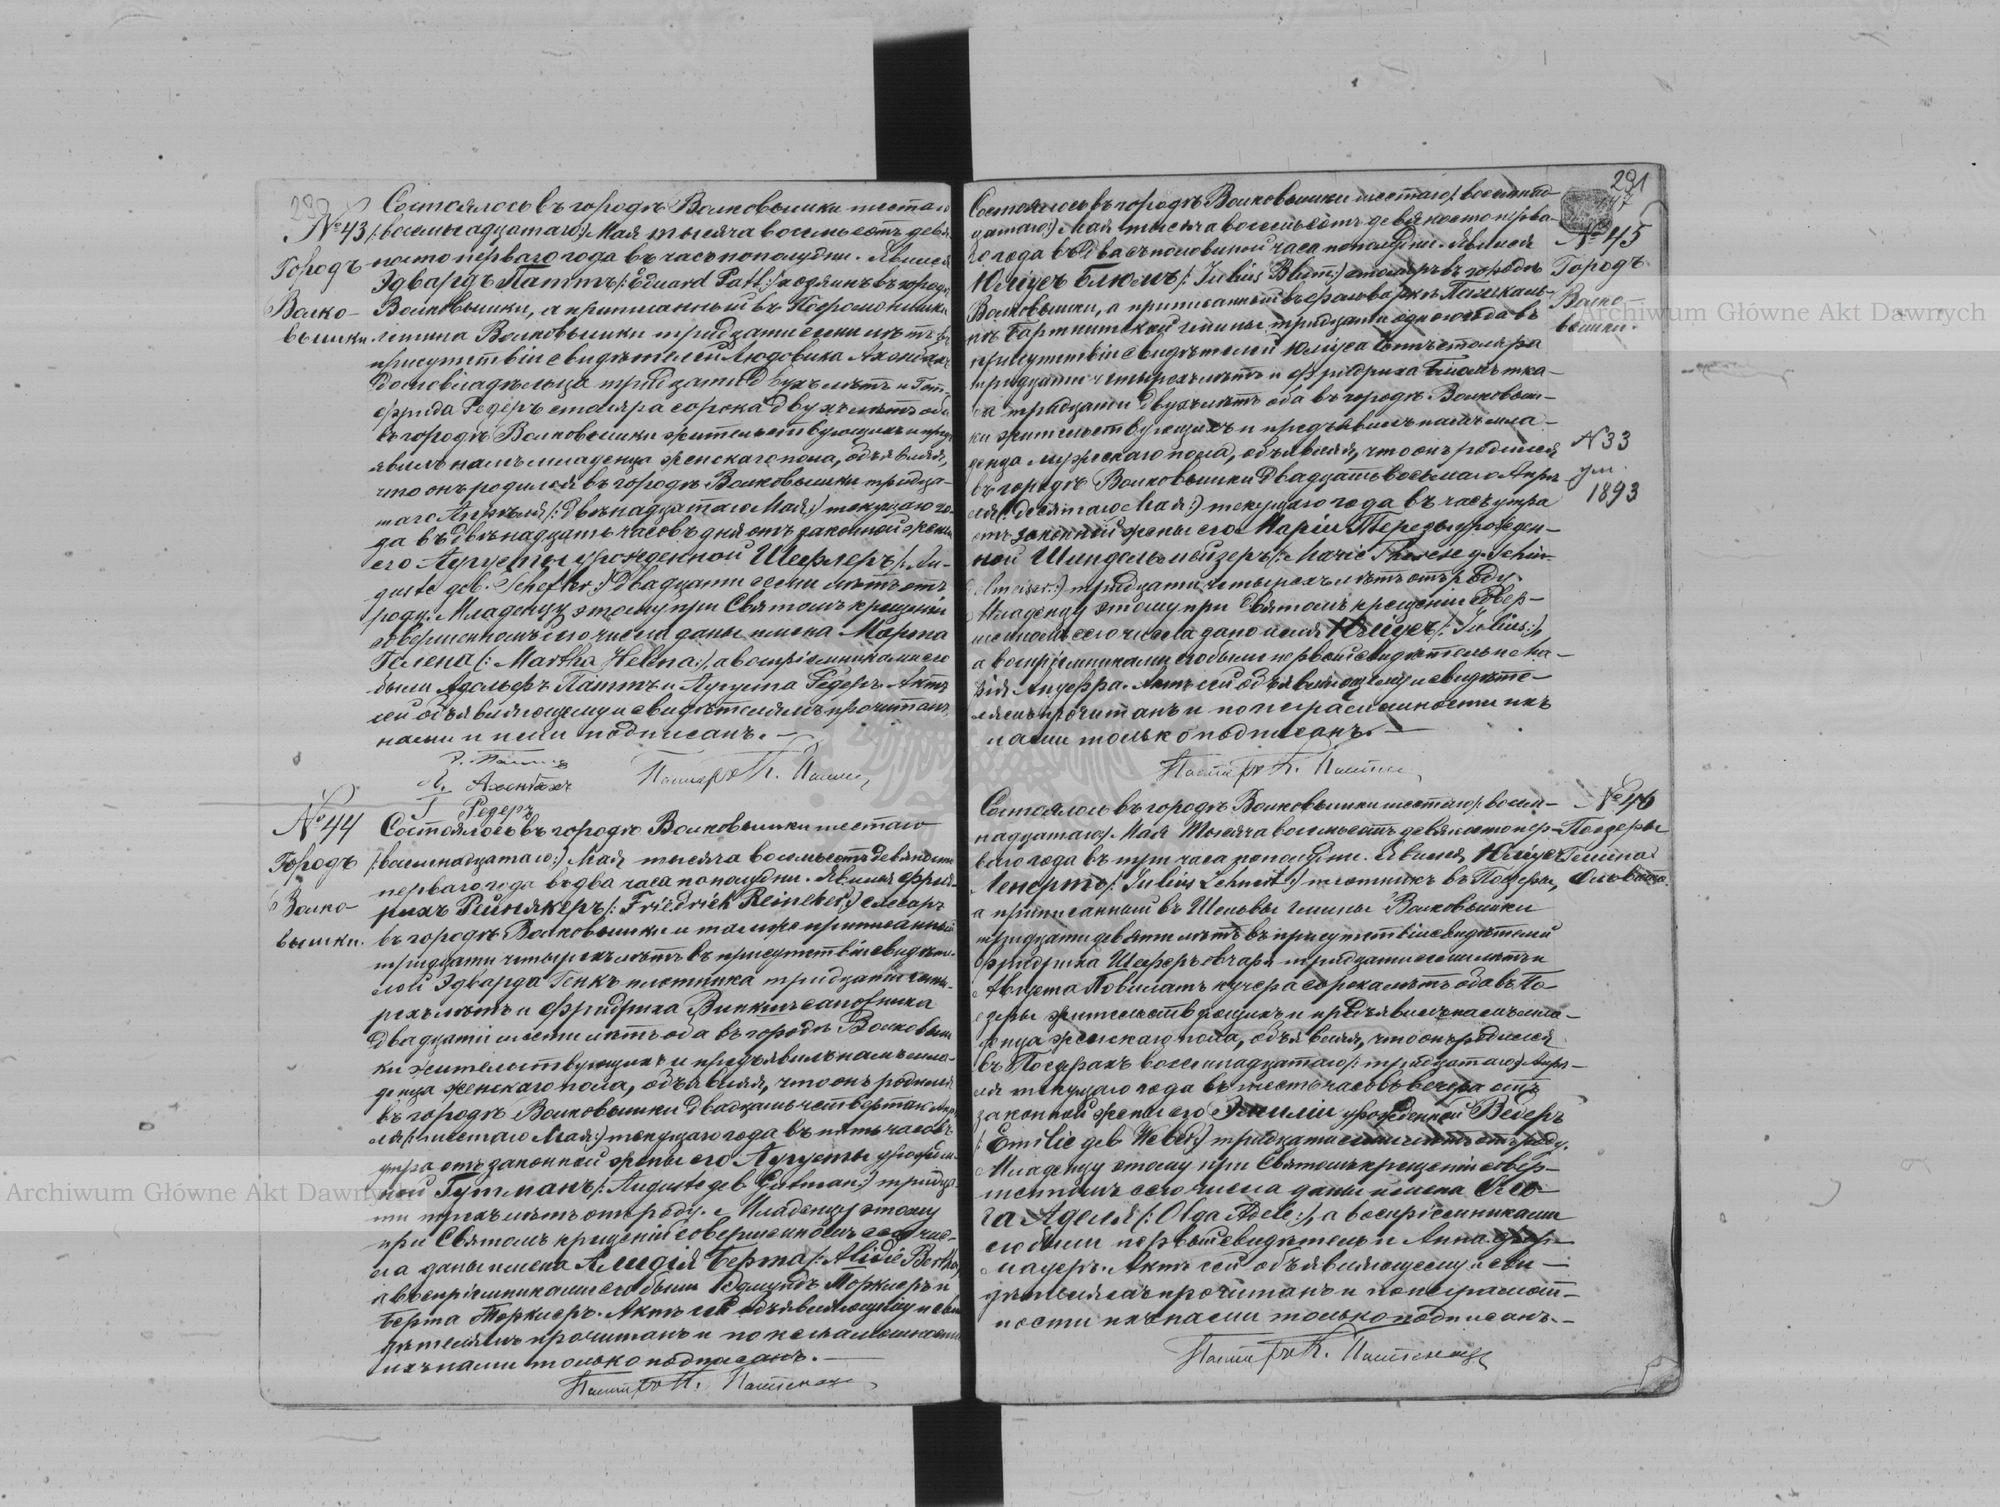 № 43
Городъ
Волко-
вышки
Состоялось въ городѣ Волковышки шестаго
/:восемнадцатаго:/ Мая тысяча восемьсотъ девя-
носто перваго года въ часъ пополудни. Явился
Эдвардъ Паттъ /:Eduard Patt:/ хозяинъ въ городѣ
Волковышки, а приписанный въ
гмина Волковышки тридцати семи лѣтъ въ
присутствіи свидѣтелей Людовика
домовладѣльца тридцати двухъ лѣтъ и Гот-
фрида Редеръ столяра сорока двухъ лѣтъ оба
въ городѣ Волковышки жительствующихъ и предъ-
явилъ намъ младенца женскаго пола, объявляя,
что онъ родился въ городѣ Волковышки тридца-
таго Апрѣля /:двѣнадцатаго Мая:/ текущаго го-
да въ двѣнадцать часовъ дня отъ законной жены
его Августы урожденной Шефлеръ /:Au-
guste geb. Schefler:/ двадцати семи лѣтъ отъ
роду. Младенцу этому при Святомъ крещеніи
совершенномъ сего числа даны имена Марта
Гелена /:Martha Helena:/, а воспріемниками его
были Адольфъ Паттъ и Августа Редеръ. Актъ
сей объявляющему и свидѣтелямъ прочитанъ,
нами и ими подписанъ.
Э. Паттъ
Л.
Г. Редеръ
Пасторъ К.
№ 44
Городъ
Волко-
вышки.
Состоялось въ городѣ Волковышки шестаго
/:восемнадцатаго:/ Мая тысяча восемьсотъ девяносто
перваго года въ два часа пополудни. Явился Фрид-
рихъ Рейнякеръ /:Friedrich Reineker:/ слесарь
въ городѣ Волковышки и тамже приписанный
тридцати четырехъ лѣтъ въ присутствіи свидѣте-
лей Эдварда Генкъ плотника тридцати четы-
рехъ лѣтъ и Фридриха сапожника
двадцати шести лѣтъ оба въ городѣ Волковыш-
ки жительствующихъ и предъявилъ намъ мла-
денца женскаго пола, объявляя, что онъ родился
въ городѣ Волковышки двадцать четвертаго Апрѣ-
ля /:шестаго Мая:/ текущаго года въ пять часовъ
утра отъ законной жены его Августы урожден-
ной Гутманъ /:Auguste geb. Gutman:/ тридца-
ти трехъ лѣтъ отъ роду. Младенцу этому
при Святомъ крещеніи совершенномъ сего чис-
ла даны имена Алидія Берта /:Alidie Bertha:/
а воспріемниками его были Эдмундъ и
Берта. Актъ сей объявляющему и сви-
дѣтелямъ прочитанъ и по неграмотности
ихъ нами только подписанъ.
Пасторъ К.
291
№ 45
Городъ
Волко-
вышки.
N 33
ум.
1893
Состоялось въ городѣ Волковышки шестаго /:восемнад-
цатаго:/ Мая тысяча восемьсотъ девяносто перва-
го года въ два съ половиной часа пополудни. Явился
Юліусъ Блюмъ /:Julius Blum:/ столяръ въ городѣ
Волковышки, а приписанный въ фольваркѣ
гмины тридцати одного года въ
присутствіи свидѣтелей Юліуса столяра
тридцати четырехъ лѣтъ и Фридриха тка-
ча тридцати двухъ лѣтъ оба въ городѣ Волковыш-
ки жительствующихъ и предъявилъ намъ мла-
денца мужескаго пола, объявляя, что онъ родился
въ городѣ Волковышки двадцать восьмаго Апрѣ-
ля /:десятаго Мая:/ текущаго года въ часъ утра
отъ законной жены его Маріи Терезы урожден-
ной Шиндельмейзеръ /:Marie Therese g. Schin-
delmeiser:/ тридцати четырехъ лѣтъ отъ роду.
Младенцу этому при Святомъ крещеніи совер-
шенномъ сего числа дано имя Юліусъ /:Julius:/,
а воспріемниками его были первый свидѣтель и Ма-
рія. Актъ сей объявляющему и свидѣте-
лямъ прочитанъ и по неграмотности ихъ
нами только подписанъ.
Пасторъ К.
№ 46
Поезеры
Гмина
Состоялось въ городѣ Волковышки шестаго /:восем-
надцатаго:/ Мая тысяча восемьсотъ девяносто пер-
ваго года въ три часа пополудни. Явился Юліусъ
Ленертъ /:Julius Lehnert:/ плотникъ въ Поезеры,
а приписанный въ гмины Волковышки
тридцати девяти лѣтъ въ присутствіи свидѣтелей
Фридриха Шеферъ овчаря тридцати семи лѣтъ и
Августа кучера сорока лѣтъ оба въ По-
езеры жительствующихъ и предъявилъ намъ мла-
денца женскаго пола, объявляя, что онъ родился
въ Поезерахъ восемнадцатаго /:тридцатаго:/ Апрѣ-
ля текущаго года въ шесть часовъ вечера отъ
законной жены его Эмиліи урожденной Веберъ
/:Emilie geb Weber:/ тридцати семи лѣтъ отъ роду.
Младенцу этому при Святомъ крещеніи совер-
шенномъ сего числа даны имена Оль-
га Аделя /:Olga Adele:/, а воспріемниками
его были первый свидѣтель и Анна
Актъ сей объявляющему и сви-
дѣтелямъ прочитанъ и по неграмот-
ности ихъ нами только подписанъ.
Пасторъ К.
Archiwum Główne Akt Dawnych
Archiwum Główne Akt Dawnych